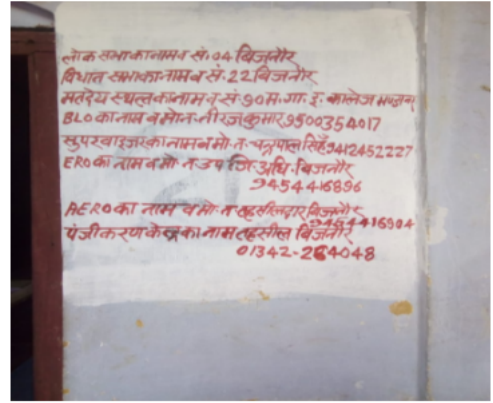 लोक सभा का नाम व सं. 04 बिजनौर
विधान सभा का नाम व सं. 22 बिजनौर
मतदेय स्थल का नाम व सं. 90 म. गा. इ. कालेज
BLO का नाम व मो. न. नीरज कुमार 9500354017
सुपरवाइजर का नाम व मो. न. चन्द्रपाल सिंह 9412452227
ERO का नाम व मो. न. उप जि. अधि. बिजनौर
9454416896
AERO का नाम व मो. न. तहसीलदार बिजनौर
9454416904
पंजीकरण केन्द्र का नाम तहसील बिजनौर
01342-264048